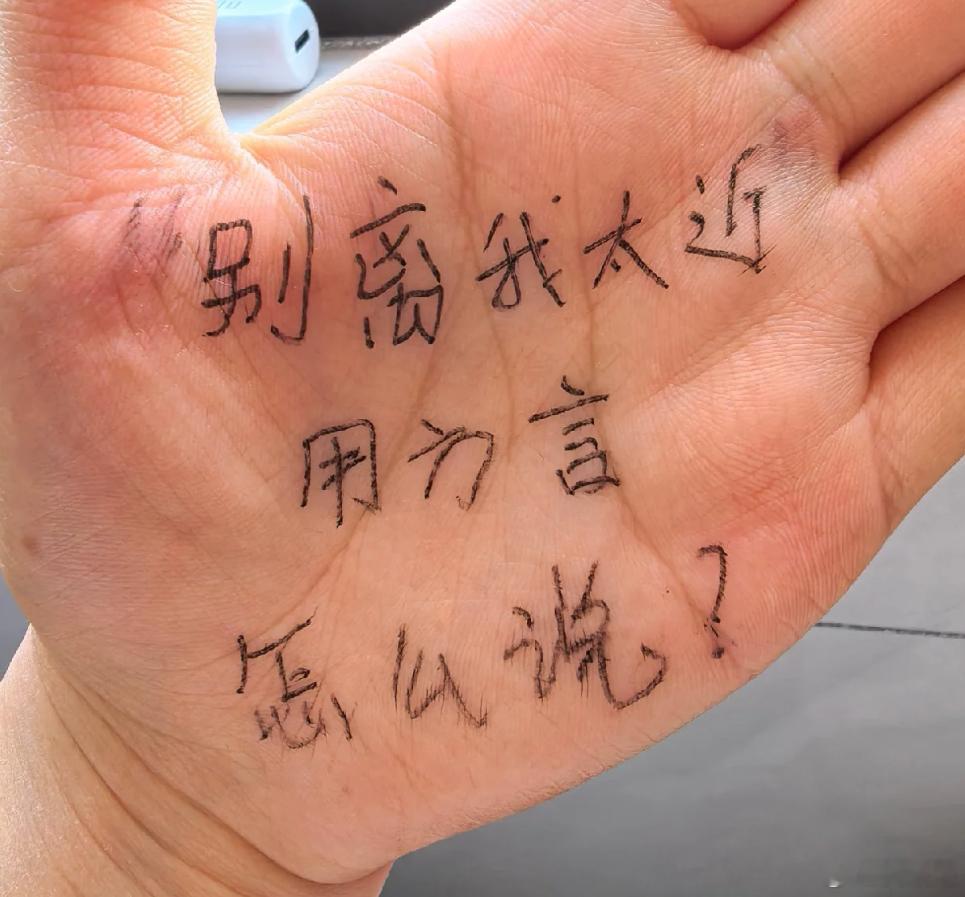 "别离我太近
用方言
怎么说?